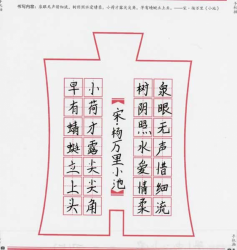 书写内容：泉眼无声惜细流，树阴照水爱晴柔。小荷才露尖尖角，早有蜻蜓立上头。——宋·杨万里《小池》
泉眼无声惜细流
树阴照水爱情柔
宋·杨万里小池
小荷才露尖尖角
早有蜻蜓立上头